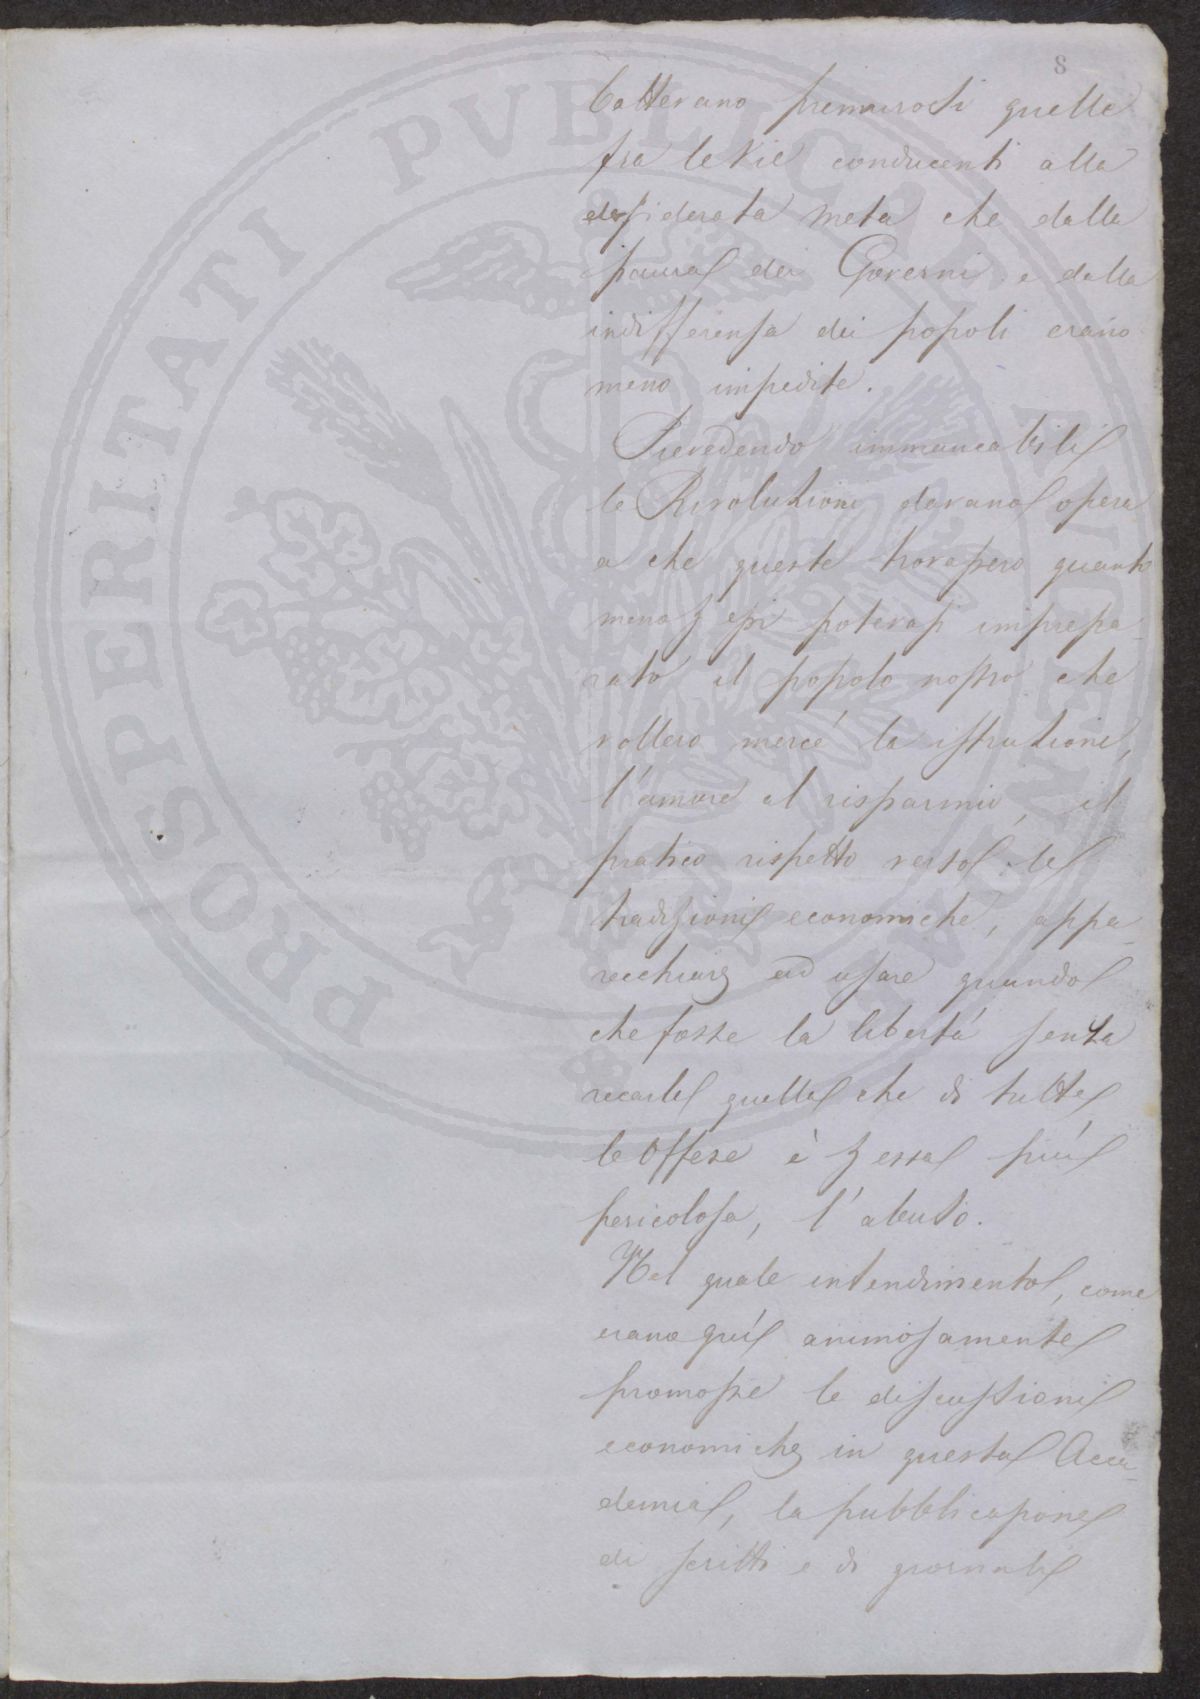 8
batterano premurosi quelle
fra le vie conducenti alla
desiderata meta che dalla
paura dei Governi e dalla
indifferenza dei popoli erano
meno impedite.
Prevedendo immancabili
le Rivoluzioni davano opera
a che queste trovassero quanto
meno essi potevasi imprepa-
rato il popolo nostro che
vollero mercé la istruzione,
l'amore al risparmio, il
pratico rispetto verso le
tradizioni economiche, appa-
recchiare ad usare quando
che fosse la libertà senza
recarle quella che di tutte
le offese è essa più
pericolosa, l'abuso.
Nel quale intendimento, come
erano quì animosamente
promosse le discussioni
economiche in questa Acca-
demia, la pubblicazione
di scritti e di giornali
PROSPERITATI PVBLICAE AVGENDAE